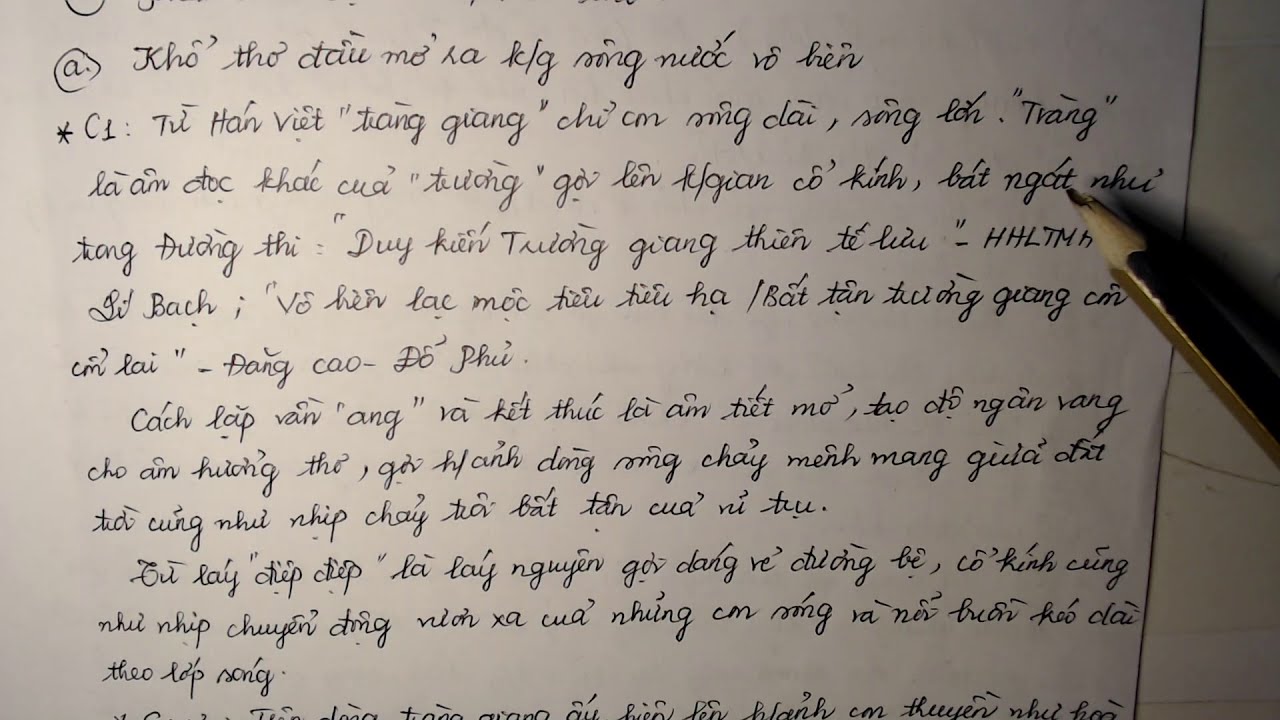 a.) Khổ thơ đầu mở ra k/g sông nước vô biên
* C1: Từ Hán Việt "tràng giang" chỉ con sông dài, sông lớn. "Tràng"
là âm đọc khác của "trường" gợi lên k/gian cổ kính, bát ngát như
trong Đường thi: "Duy kiến Trường giang thiên tế lưu" - HHLTMH
Lí Bạch; "Vô biên lạc mộc tiêu tiêu hạ / Bất tận trường giang cổn
cổn lai" - Đăng cao - Đỗ Phủ.
Cách lặp vần "ang" và kết thúc là âm tiết mở, tạo độ ngân vang
cho âm hưởng thơ, gợi h/ảnh dòng sông chảy mênh mang giữa đất
trời cũng như nhịp chảy trôi bất tận của vũ trụ.
Từ láy "điệp điệp" là láy nguyên gợi dáng vẻ đường bệ, cổ kính cũng
như nhịp chuyển động vươn xa của những con sóng và nỗi buồn kéo dài
theo lớp sóng.
Trên dòng tràng giang ấy hiện lên h/ảnh con thuyền như